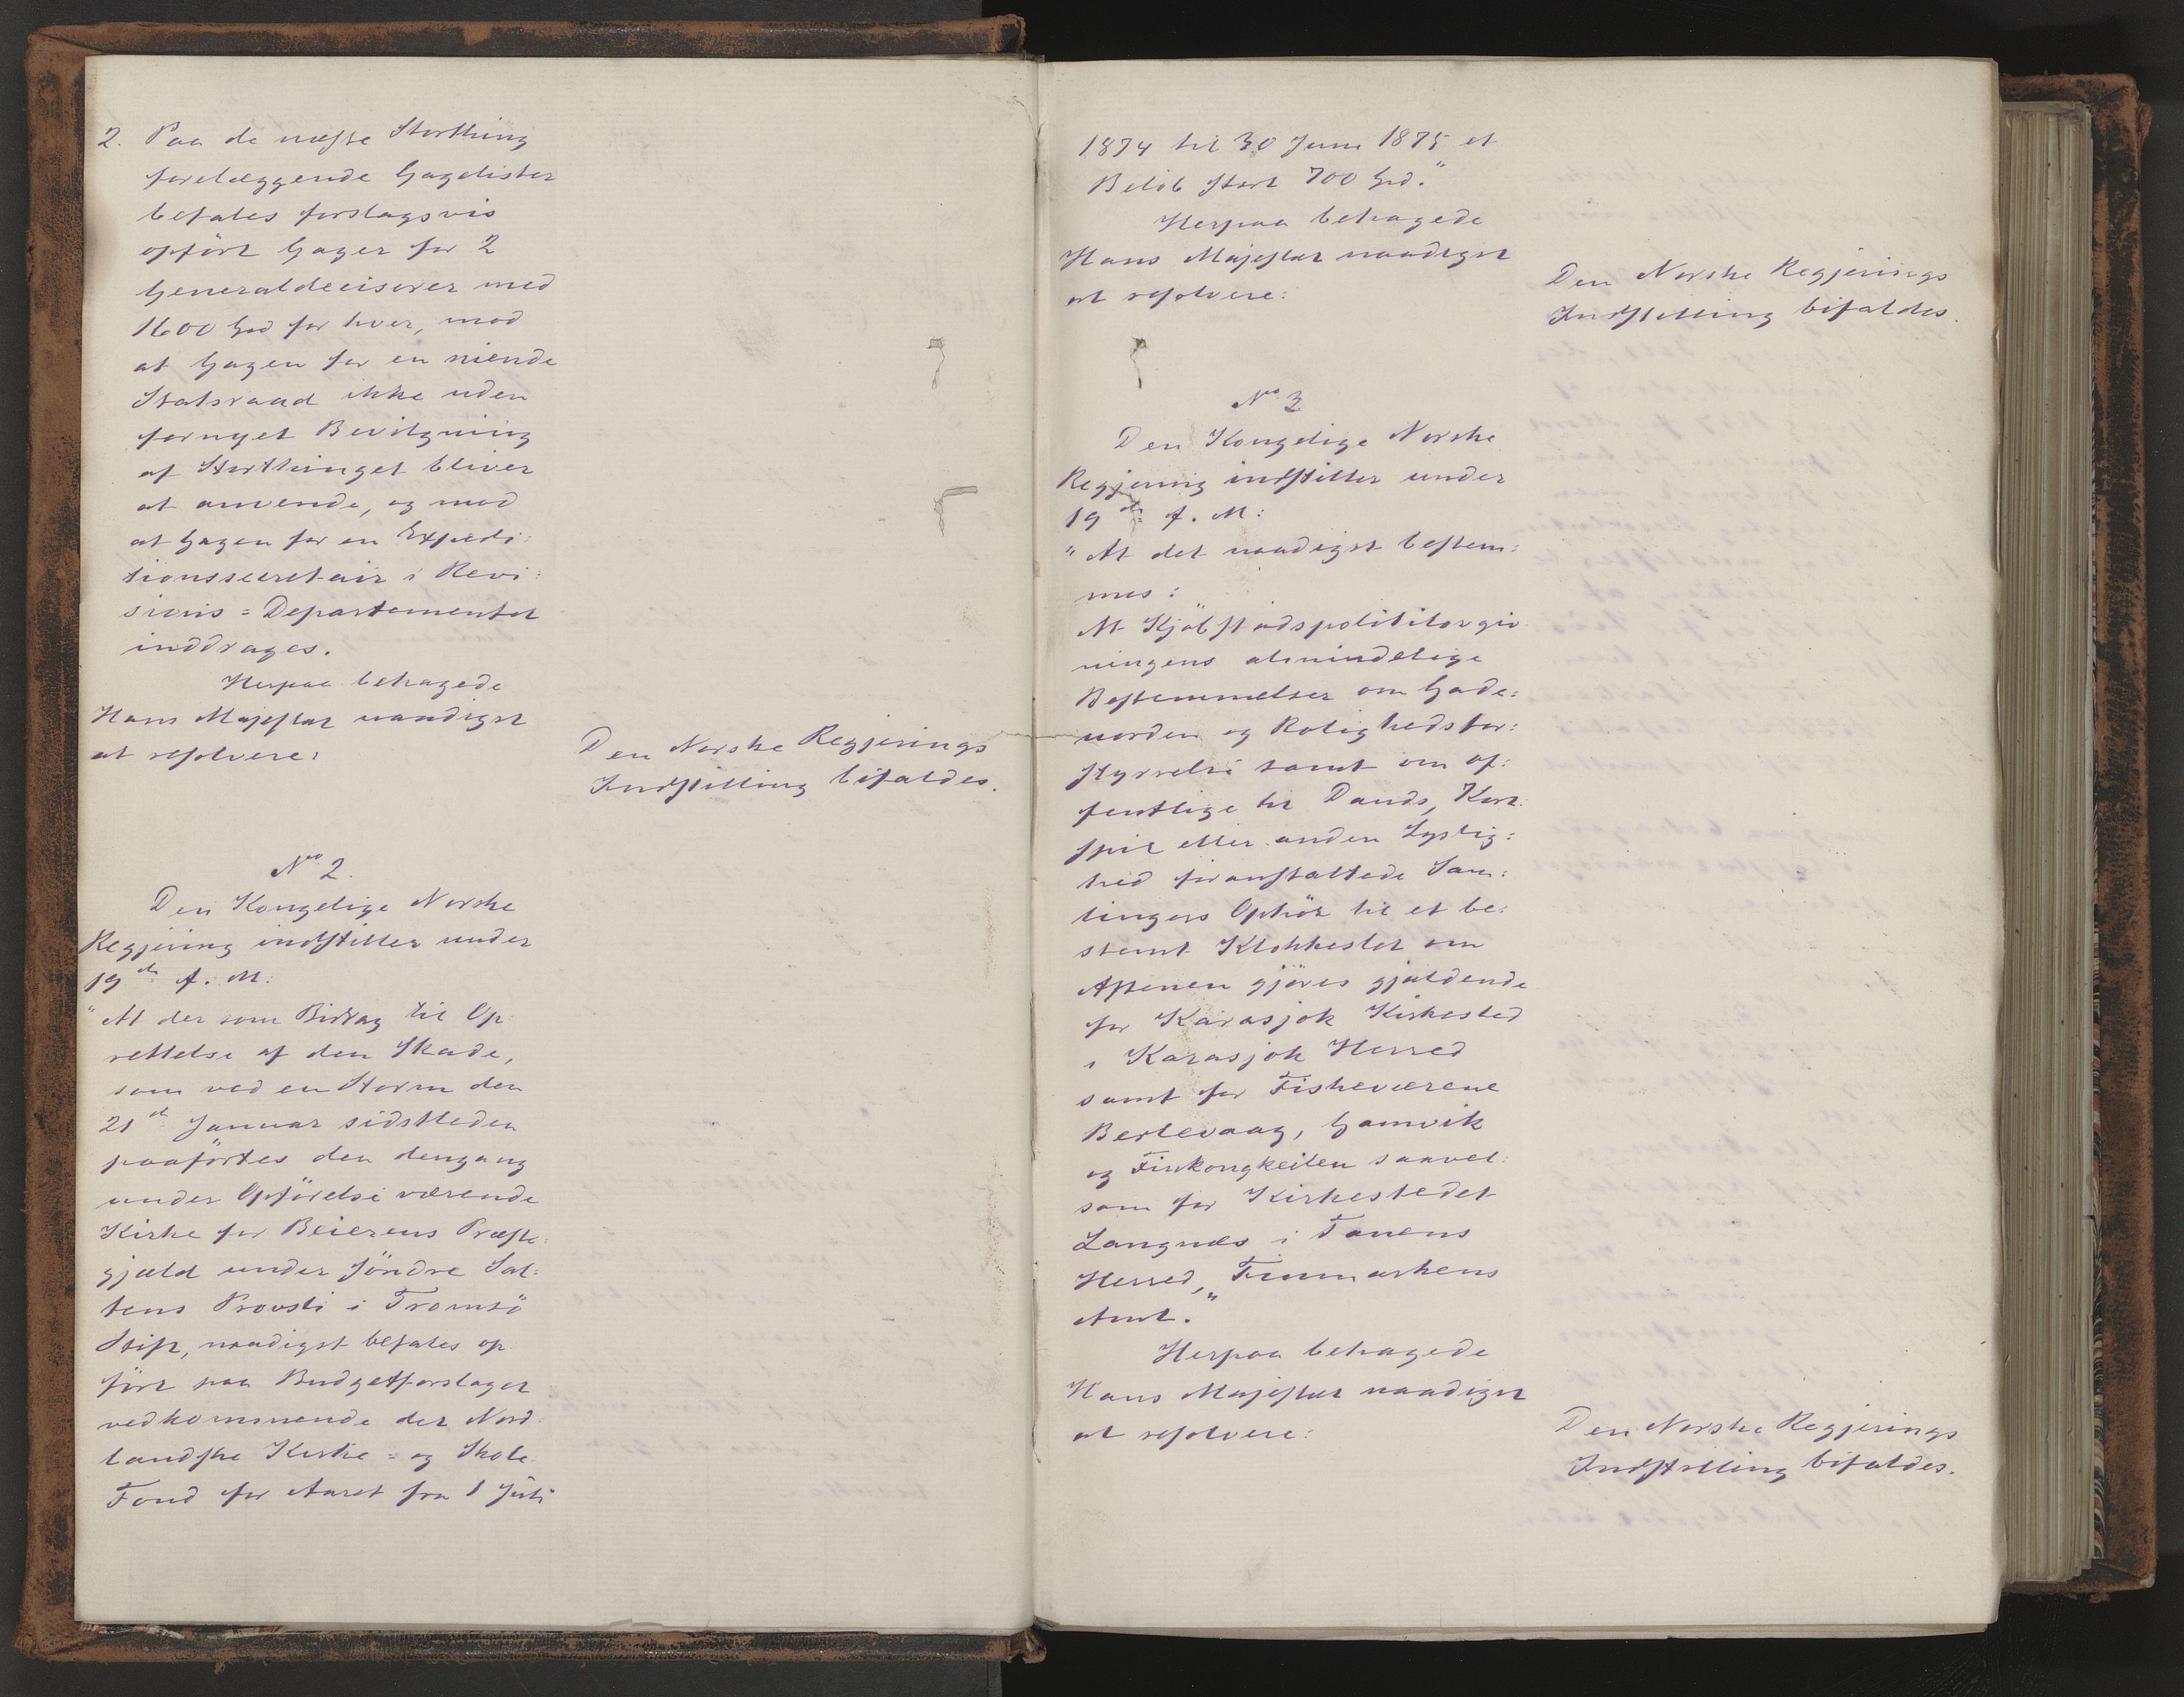 2. Paa de næste Storthing
forelæggende Gagelister
befales forslagsvis
opført Gager for 2
Generaldecisorer med
1600 Spd for hver, mod
at Gagen for en niende
Statsraad ikke uden
fornyet Bevilgning
af Storthinget bliver
at anvende, og mod
at Gagen for en Expedi=
tionssecretair i Revi=
sions=Departementet
inddrages.
Herpaa behagede
Hans Majestæt naadigst
at resolvere:
Den Norske Regjerings
Indstilling bifaldes.
No 2.
Den Kongelige Norske
Regjering indstiller under
19de d. M:
"At der som Bidrag til Op=
rettelse af den Skade,
som ved en Storm den
21de Januar sidstleden
paaførtes den dengang
under Opførelse værende
Kirke for Beierens Præste=
gjæld under Søndre Sal=
tens Provsti i Tromsø
Stift, naadigst befales op=
ført paa Budgetforslaget
vedkommende det Nord=
landske Kirke= og Skole=
Fond for Aaret fra 1 Juli
1874 til 30 Juni 1875 et
Beløb stort 700 Spd."
Herpaa behagede
Hans Majestæt naadigst
at resolvere:
Den Norske Regjerings
Indstilling bifaldes.
No 3
Den Kongelige Norske
Regjering indstiller under
19de d. M:
"At det naadigst bestem=
mes:
At Kjøbstadspolitilovgiv=
ningens almindelige
Bestemmelser om Gade=
uorden og Rolighedsfor=
styrrelse samt om of=
fentlige til Dands, Kort=
spil eller anden Lystig=
hed foranstaltede Sam=
lingers Ophør til et be=
stemt Klokkeslet om
Aftenen gjøres gjældende
for Karasjok Kirkested
i Karasjok Herred
samt for Fiskeværene
Berlevaag, Gamvik
og Finkongkeilen saavel
som for Kirkestedet
Langnæs i Tanens
Herred, Finmarkens
Amt."
Herpaa behagede
Hans Majestæt naadigst
at resolvere:
Den Norske Regjerings
Indstilling bifaldes.